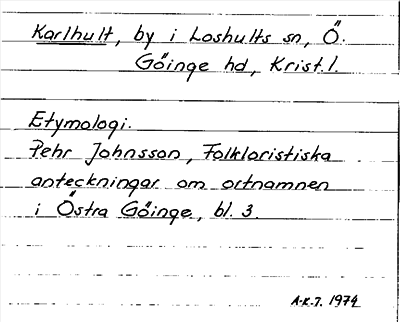 Karlhult, by i Loshults sn, Ö.
Göinge hd, Krist. l.
Etymologi.
Pehr Johnsson, Folkloristiska
anteckningar om ortnamnen
i Östra Göinge, bl. 3.
A-K.J. 1974